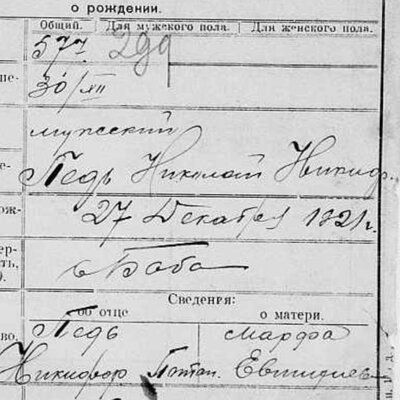 о рождении.
Общий. Для мужского пола. Для женского пола.
577 299
30/XII
мужской
Педь Николай Никиф.
27 Декабря 1921 г.
с Баба
Сведения:
об отце о матери.
Педь Марфа
Никифор Потап. Евтихиев